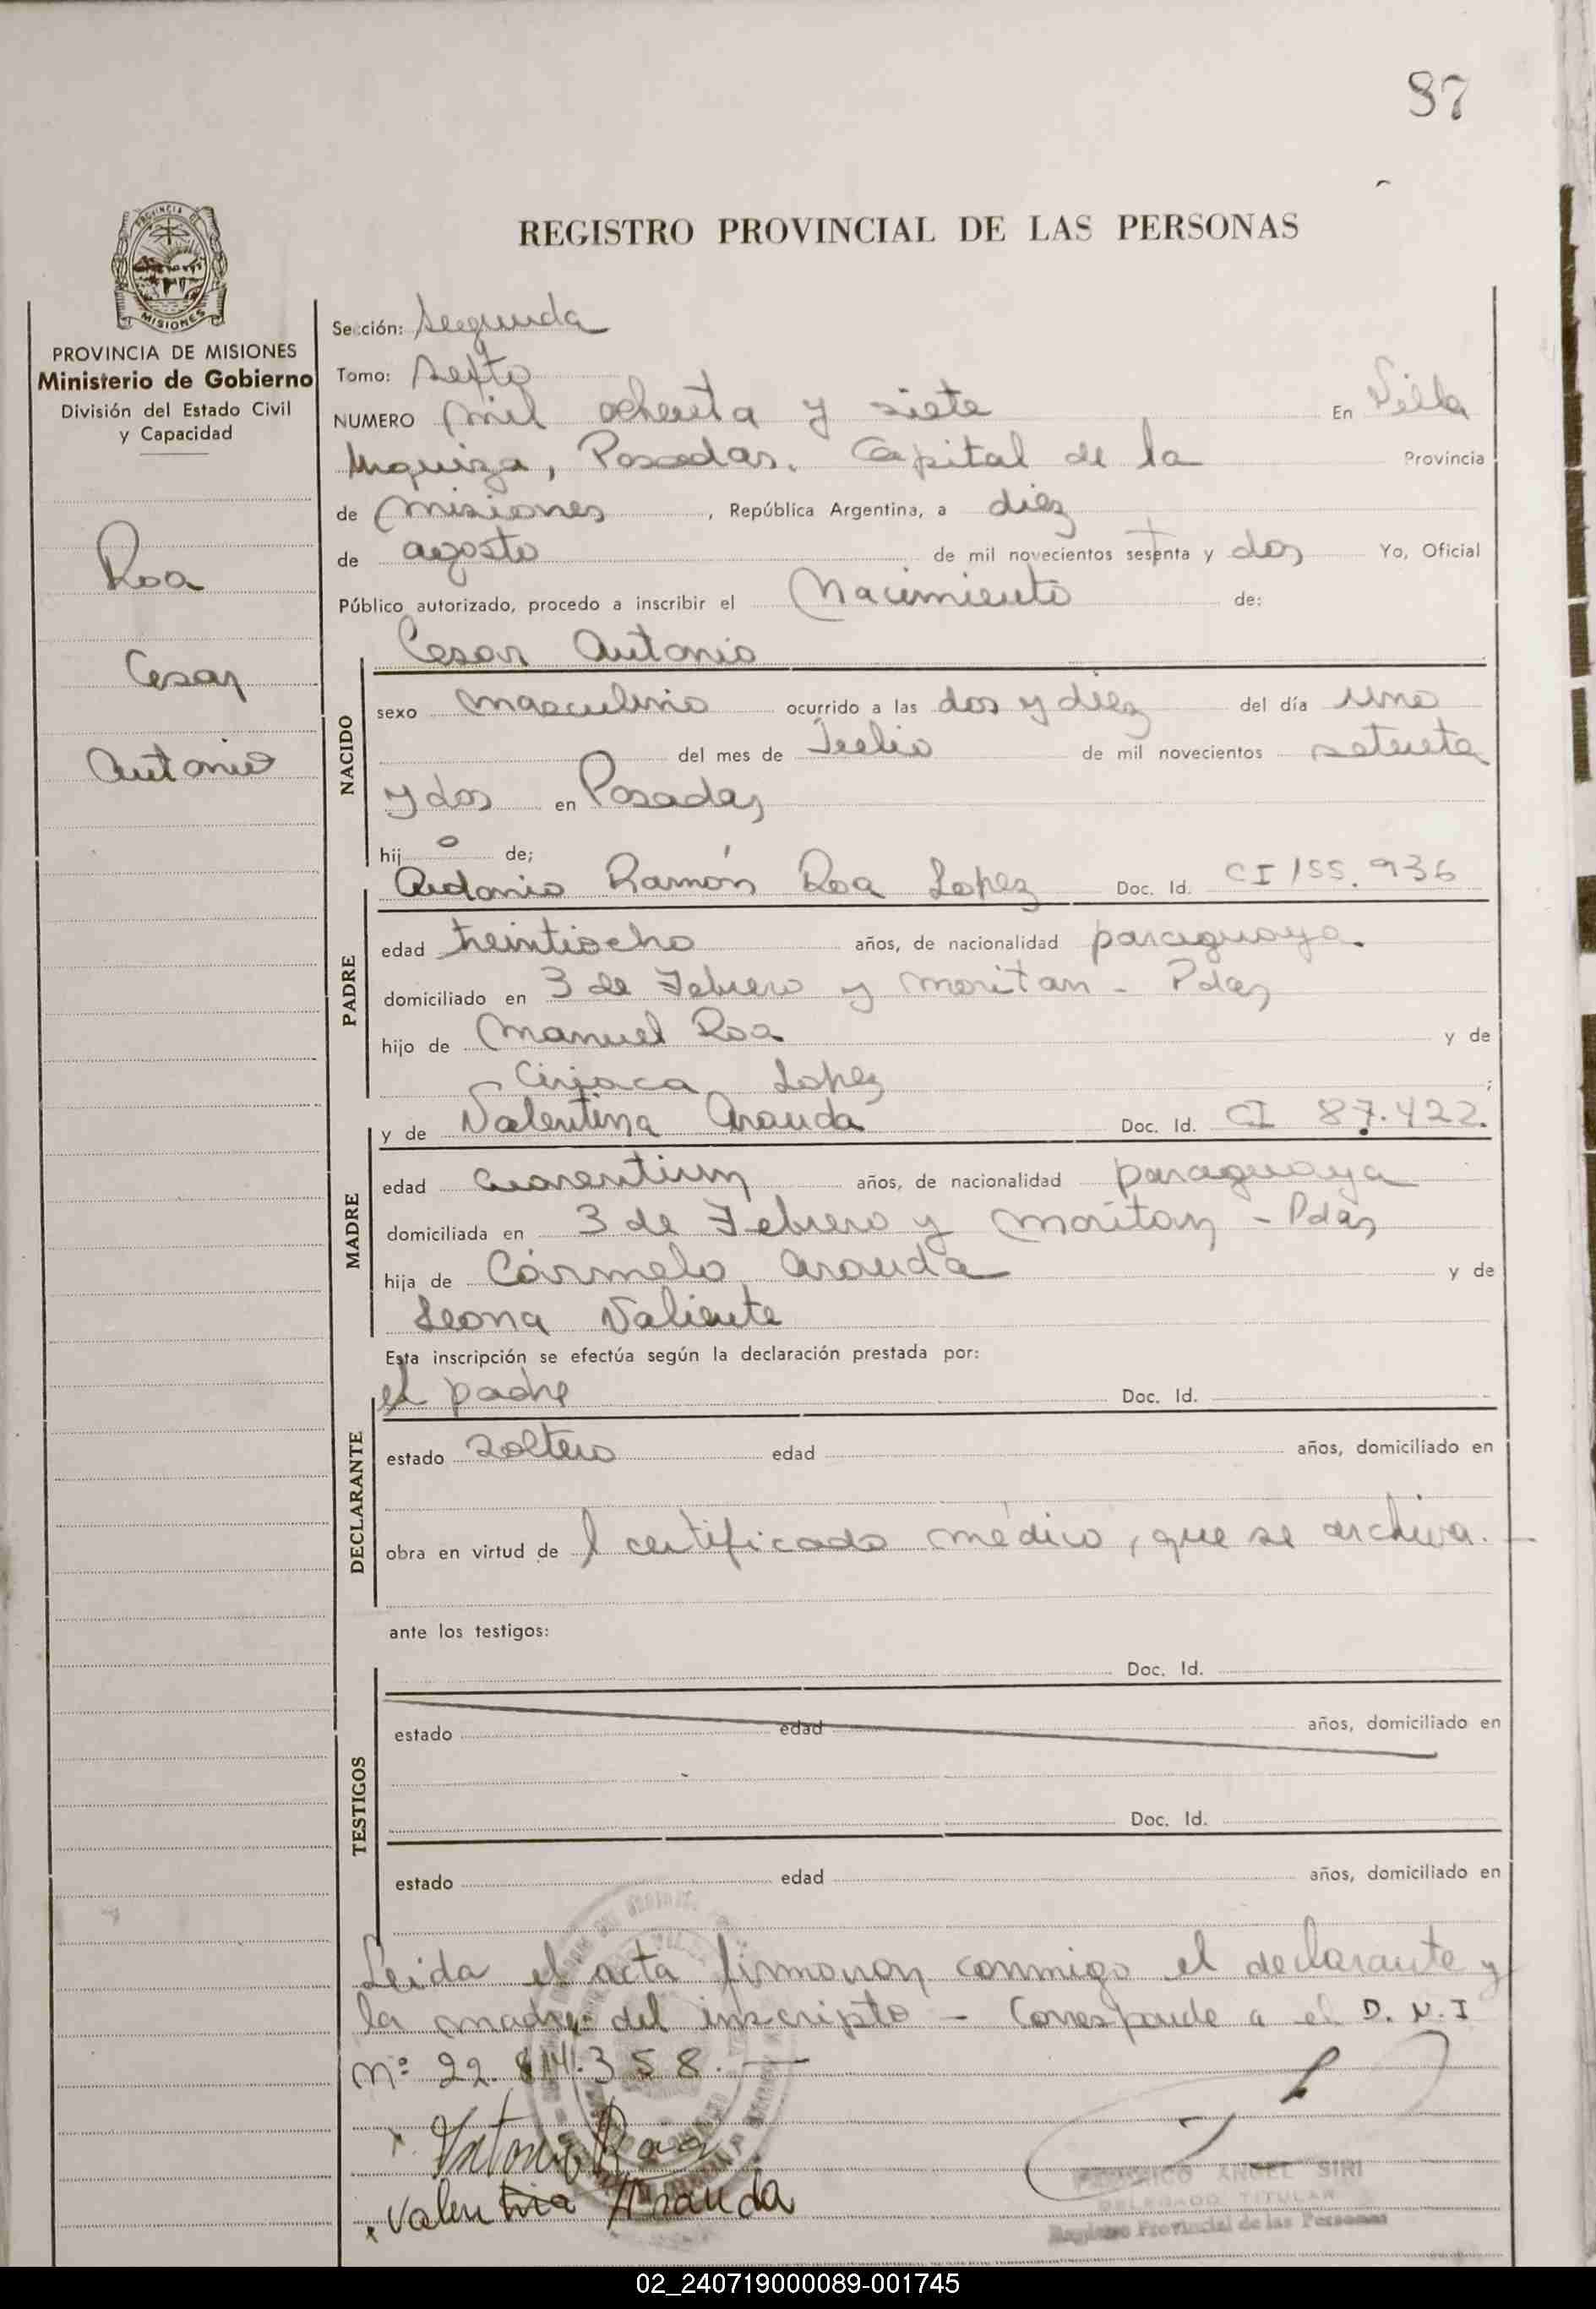 87
REGISTRO PROVINCIAL DE LAS PERSONAS
PROVINCIA DE
MISIONES
PROVINCIA DE MISIONES
Ministerio de Gobierno
División del Estado Civil
y Capacidad
Roa
Cesar
Antonio
Sección: Segunda
Tomo: Sexto
NUMERO mil ochenta y siete En Villa
Urquiza, Posadas, Capital de la Provincia
de Misiones, República Argentina, a diez
de agosto de mil novecientos sesenta y dos Yo, Oficial
Público autorizado, procedo a inscribir el Nacimiento de:
Cesar Antonio
NACIDO
sexo masculino ocurrido a las dos y diez del día uno
del mes de Julio de mil novecientos setenta
y dos en Posadas
hijo de;
Antonio Ramón Roa Lopez Doc. Id. CI 155.936
PADRE
edad treintiocho años, de nacionalidad paraguaya.
domiciliado en 3 de Febrero y Moritan - Pdas
hijo de Manuel Roa y de
Ciriaca Lopez ;
y de Valentina Aranda Doc. Id. CI 87.422.
MADRE
edad cuarentiun años, de nacionalidad paraguaya
domiciliada en 3 de Febrero y Moritan - Pdas
hija de Cármelo Aranda y de
Leona Valiente
Esta inscripción se efectúa según la declaración prestada por:
el padre Doc. Id.
DECLARANTE
estado soltero edad años, domiciliado en
obra en virtud de l certificado médico, que se archiva.
ante los testigos:
Doc. Id.
TESTIGOS
estado edad años, domiciliado en
Doc. Id.
estado edad años, domiciliado en
Leida el acta firmaron conmigo el declarante y
la madre del inscripto - Corresponde a el D.N.I
Nº 22.814.358.
x Antonio Roa
x Valentina Aranda
ANGEL SIRI
DELEGADO TITULAR
Registro Provincial de las Personas
02_240719000089-001745